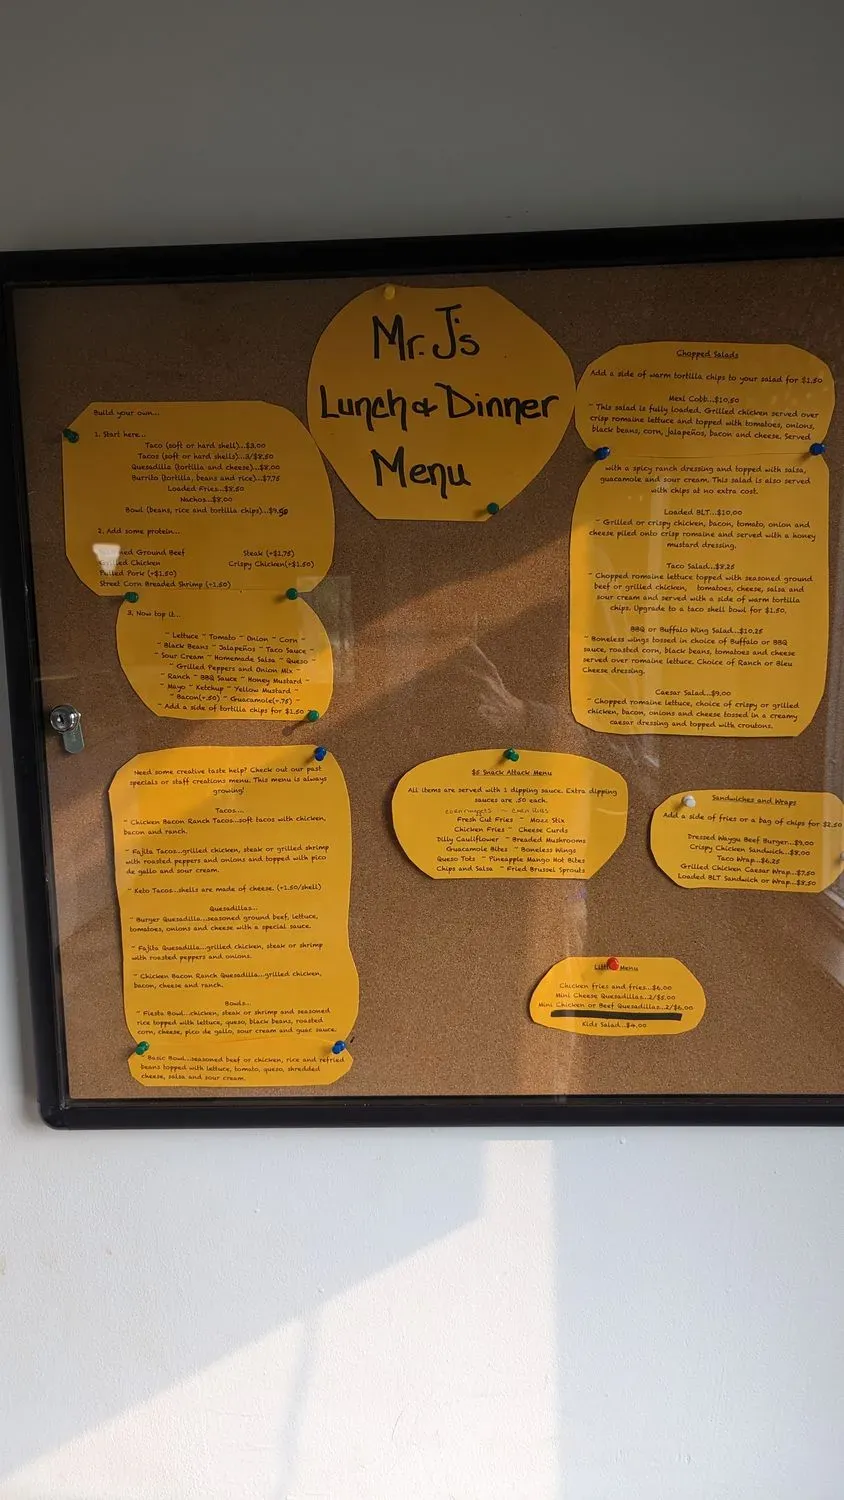 Mr. J's
Lunch & Dinner
Menu
Build your own...
1. Start here...
Taco (soft or hard shell)...$3.00
Tacos (soft or hard shells)...3/$8.50
Quesadilla (tortilla and cheese)...$8.00
Burrito (tortilla, beans and rice)...$7.75
Loaded Fries...$8.50
Nachos...$8.00
Bowl (beans, rice and tortilla chips)...$9.50
2. Add some protein...
Ground Beef Steak (+$1.75)
Grilled Chicken Crispy Chicken(+$1.50)
Pulled Pork (+$1.50)
Street Corn Breaded Shrimp (+1.50)
3. Now top it...
~ Lettuce ~ Tomato ~ Onion ~ Corn ~
~ Black Beans ~ Jalapeños ~ Taco Sauce ~
~ Sour Cream ~ Homemade Salsa ~ Queso ~
~ Grilled Peppers and Onion Mix ~
~ Ranch ~ BBQ Sauce ~ Honey Mustard ~
~ Mayo ~ Ketchup ~ Yellow Mustard ~
~ Bacon(+.50) ~ Guacamole(+.75) ~
~ Add a side of tortilla chips for $1.50
Need some creative taste help? Check out our past
specials or staff creations menu. This menu is always
growing!
Tacos...
~ Chicken Bacon Ranch Tacos...soft tacos with chicken,
bacon and ranch.
~ Fajita Tacos...grilled chicken, steak or grilled shrimp
with roasted peppers and onions and topped with pico
de gallo and sour cream.
~ Keto Tacos...shells are made of cheese. (+1.50/shell)
Quesadillas...
~ Burger Quesadilla...seasoned ground beef, lettuce,
tomatoes, onions and cheese with a special sauce.
~ Fajita Quesadilla...grilled chicken, steak or shrimp
with roasted peppers and onions.
~ Chicken Bacon Ranch Quesadilla...grilled chicken,
bacon, cheese and ranch.
Bowls...
~ Fiesta Bowl...chicken, steak or shrimp and seasoned
rice topped with lettuce, queso, black beans, roasted
corn, cheese, pico de gallo, sour cream and guac sauce.
~ Basic Bowl...seasoned beef or chicken, rice and refried
beans topped with lettuce, tomato, queso, shredded
cheese, salsa and sour cream.
$5 Snack Attack Menu
All items are served with 1 dipping sauce. Extra dipping
sauces are .50 each.
corn nuggets ~ corn
Fresh Cut Fries ~ Mozz Stix
Chicken Fries ~ Cheese Curds
Dilly Cauliflower ~ Breaded Mushrooms
Guacamole Bites ~ Boneless Wings
Queso Tots ~ Pineapple Mango Hot Bites
Chips and Salsa ~ Fried Brussel Sprouts
Chopped Salads
Add a side of warm tortilla chips to your salad for $1.50
Mexi Cobb...$10.50
~ This salad is fully loaded. Grilled chicken served over
crisp romaine lettuce and topped with tomatoes, onions,
black beans, corn, jalapeños, bacon and cheese. Served
with a spicy ranch dressing and topped with salsa,
guacamole and sour cream. This salad is also served
with chips at no extra cost.
Loaded BLT...$10.00
~ Grilled or crispy chicken, bacon, tomato, onion and
cheese piled onto crisp romaine and served with a honey
mustard dressing.
Taco Salad...$8.25
~ Chopped romaine lettuce topped with seasoned ground
beef or grilled chicken, tomatoes, cheese, salsa and
sour cream and served with a side of warm tortilla
chips. Upgrade to a taco shell bowl for $1.50.
BBQ or Buffalo Wing Salad...$10.25
~ Boneless wings tossed in choice of Buffalo or BBQ
sauce, roasted corn, black beans, tomatoes and cheese
served over romaine lettuce. Choice of Ranch or Bleu
Cheese dressing.
Caesar Salad...$9.00
~ Chopped romaine lettuce, choice of crispy or grilled
chicken, bacon, onions and cheese tossed in a creamy
caesar dressing and topped with croutons.
Sandwiches and Wraps
Add a side of fries or a bag of chips for $2.50
Dressed Waygu Beef Burger...$9.00
Crispy Chicken Sandwich...$8.00
Taco Wrap...$6.25
Grilled Chicken Caesar Wrap...$7.50
Loaded BLT Sandwich or Wrap...$8.50
Menu
Chicken fries and fries...$6.00
Mini Cheese Quesadillas...2/$5.00
Mini Chicken or Beef Quesadillas...2/$6.00
Kids Salad...$4.00